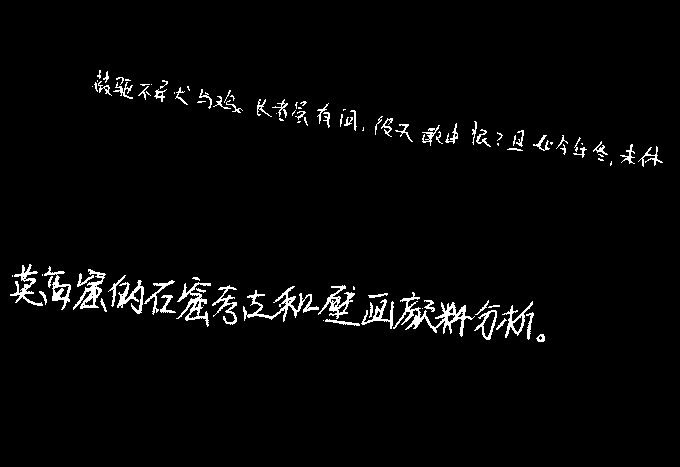 被驱不异犬与鸡。长者虽有问,役夫敢申恨?且如今年冬,未休
莫高窟的石窟考古和壁画颜料分析。